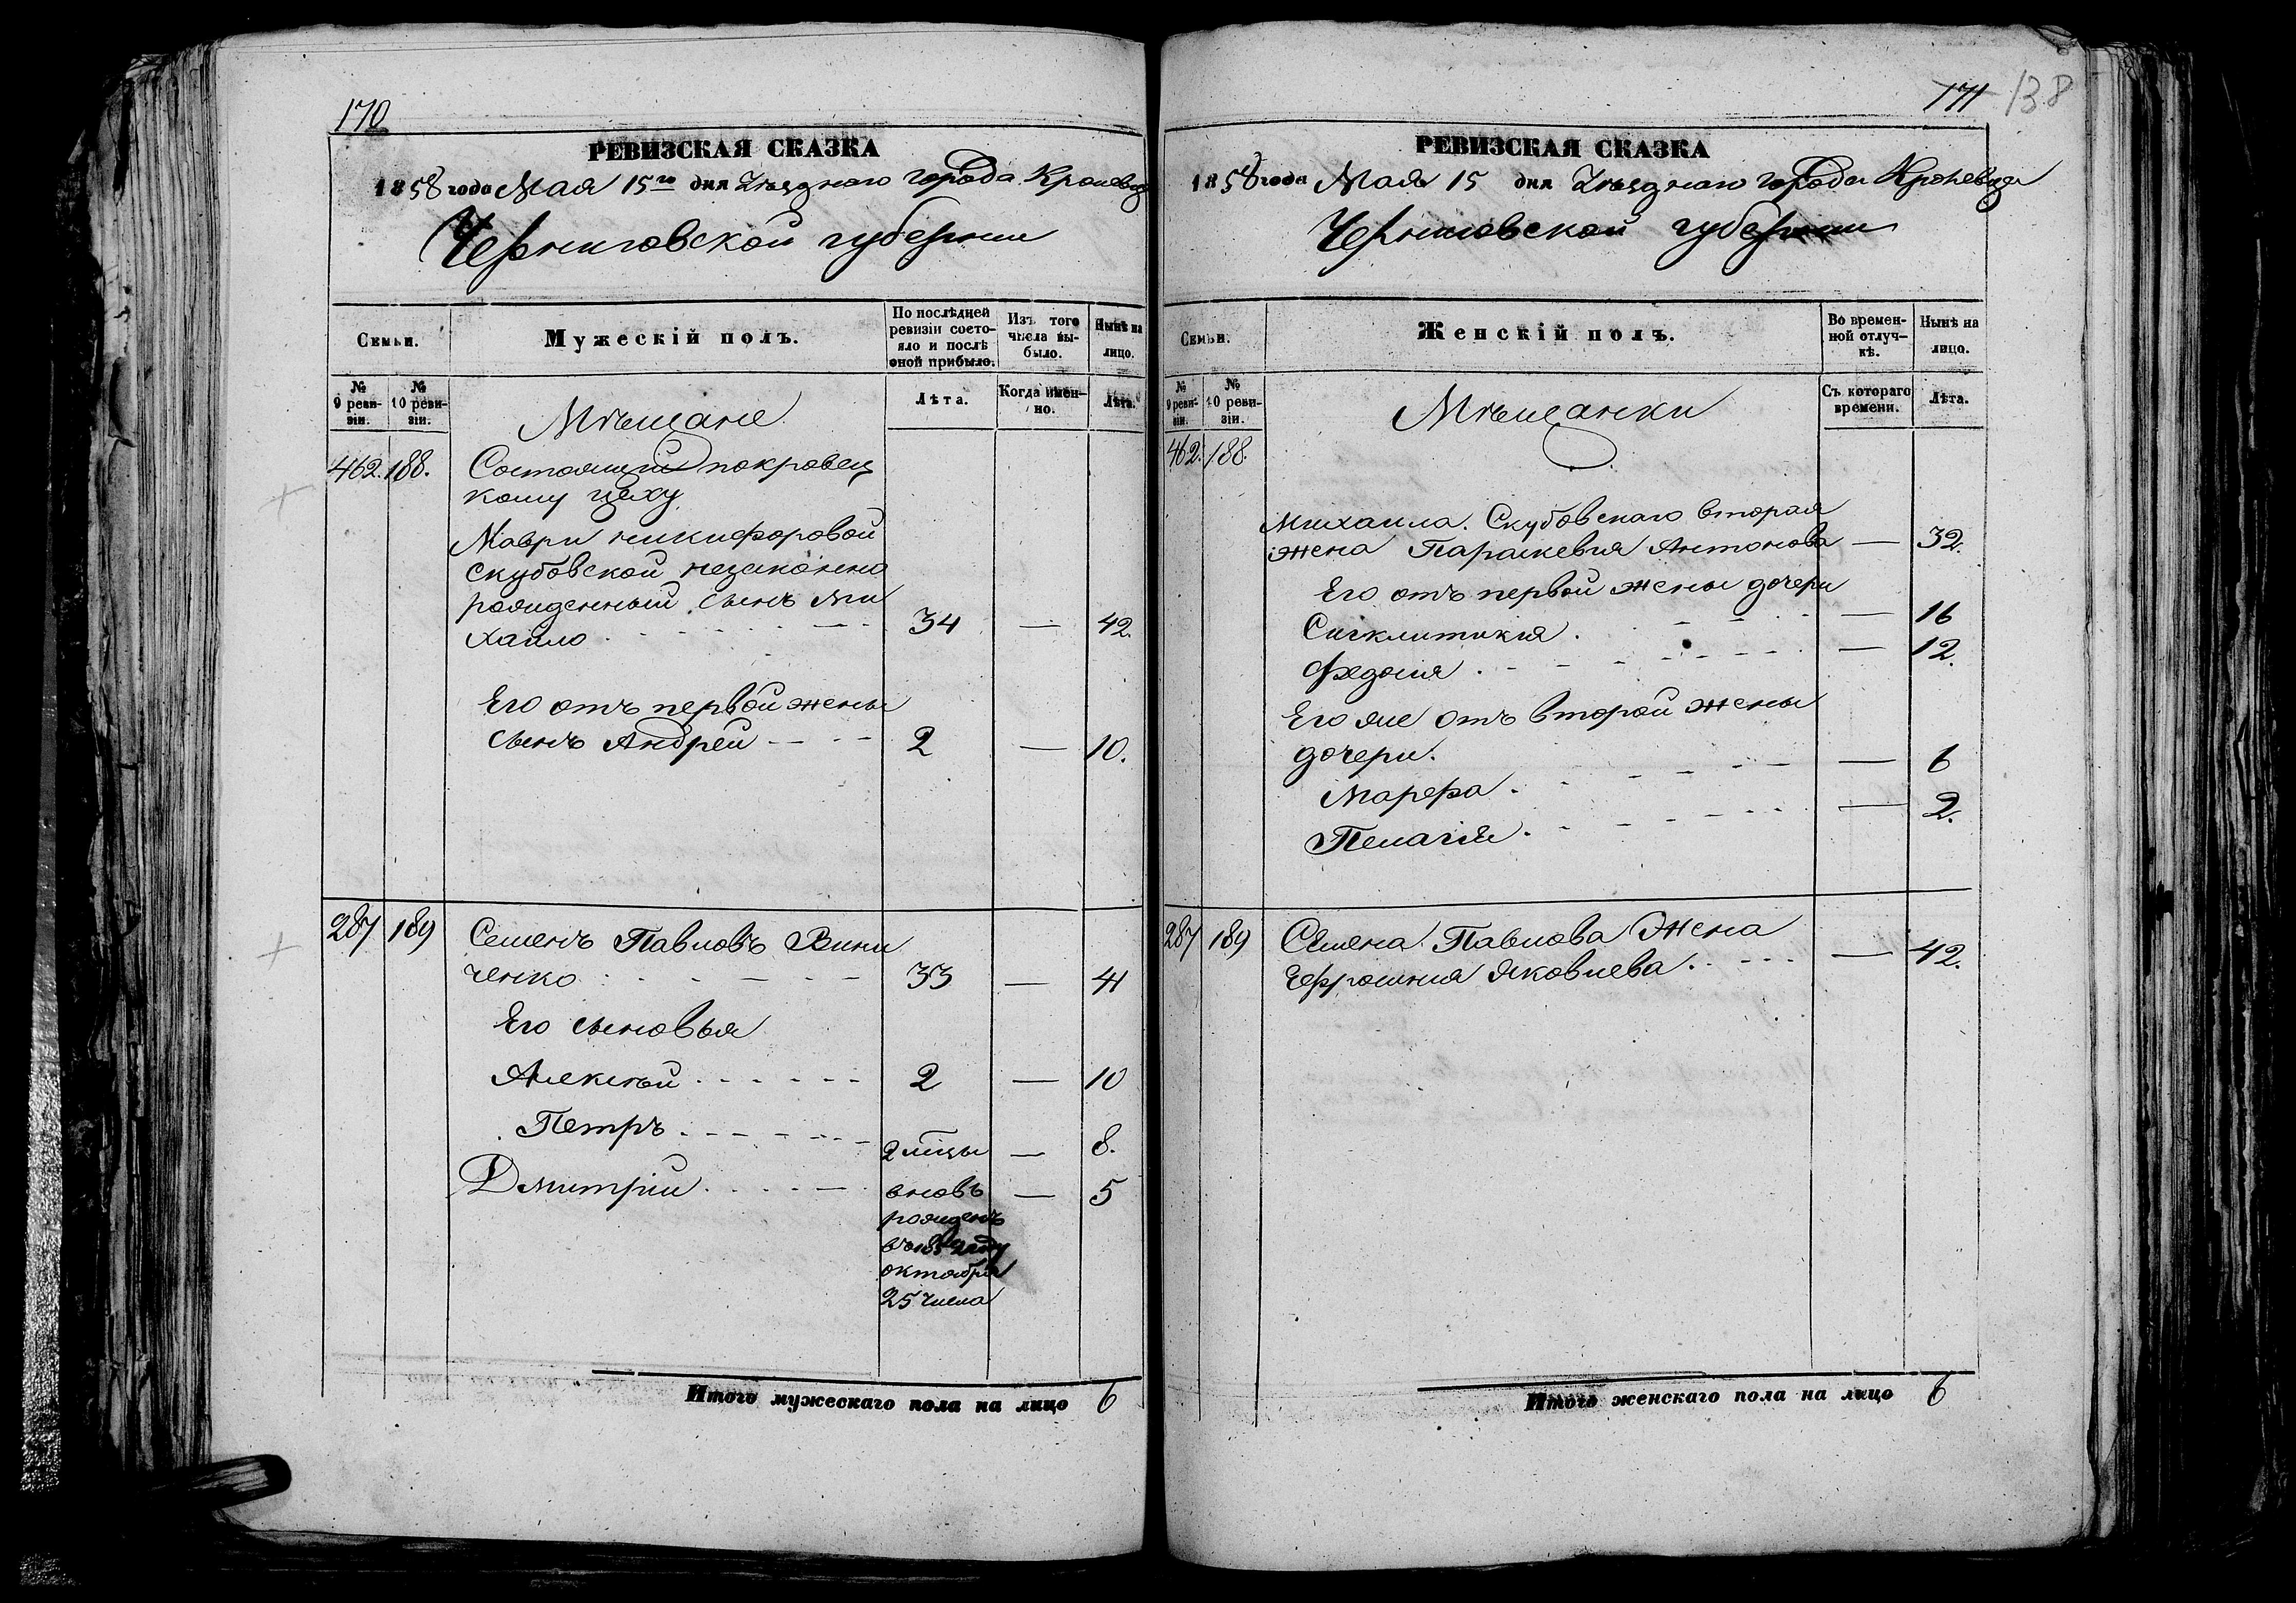 170
РЕВИЗСКАЯ СКАЗКА
1858 года Мая 15го дня Уѣзднаго города Кролевца
Черниговской губернии
Семьи.
Мужескій полъ.
По послѣдней ревизіи состояло и послѣ оной прибыло.
Изъ того числа выбыло.
Нынѣ на лицо.
№ 9 ревизіи.
№ 10 ревизіи.
Мѣщане
Лѣта.
Когда именно.
Лѣта.
462. 188. Состоящий покровец
кому цеху
Маври никифоровой
скубовской незаконно
рожденный сынъ Ми
хаило 34 — 42.
Его отъ первой жены
сынъ Андрей 2 — 10.
287 189 Семенъ Павловъ
ченко 33 — 41
Его сыновья
Алексѣй 2 — 10
Петръ 2 мсцы — 8.
Дмитрий вновь — 5
рожденъ
въ 1852 году
октября
25 числа
Итого мужескаго пола на лицо 6
171 138
РЕВИЗСКАЯ СКАЗКА
1858 года Мая 15 дня Уѣзднаго города Кролевца
Черниговской губернии
Семьи.
Женскій полъ.
Во временной отлучкѣ.
Нынѣ на лицо.
№ 9 ревизіи.
№ 10 ревизіи.
Мѣщанки
Съ котораго времени.
Лѣта.
462. 188.
Михаила Скубовскаго вторая
жена Параскевия Антонова — 32.
Его отъ первой жены дочери
Сигклитикия — 16
Федосия — 12.
Его же отъ второй жены
дочери.
Марфа — 6
Пелагия — 2.
287 189 Семена Павлова Жена
Ефросиния Яковлева — 42.
Итого женскаго пола на лицо 6